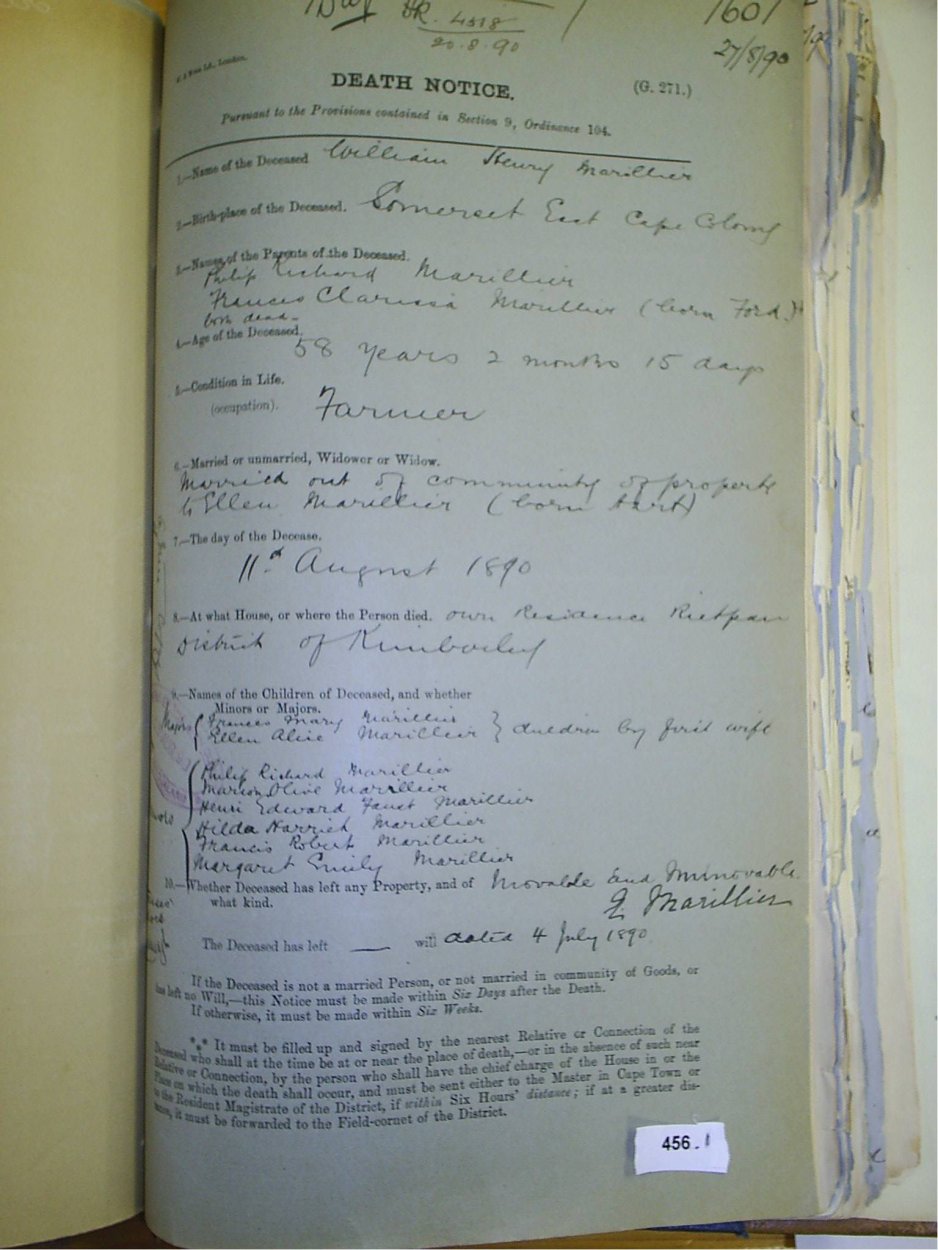 4518
20.8.90
1601
27/8/90
DEATH NOTICE.
(G. 271.)
Pursuant to the Provisions contained in Section 9, Ordinance 104.
1.—Name of the Deceased William Henry Marillier
2.—Birth-place of the Deceased. Somerset East Cape Colony
3.—Names of the Parents of the Deceased.
Philip Richard Marillier
Frances Clarissa Marillier (born Ford.)
both dead.
4.—Age of the Deceased.
58 years 2 months 15 days
5.—Condition in Life.
(occupation). Farmer
6.—Married or unmarried, Widower or Widow.
Married out of community of property
to Ellen Marillier (born Hart)
7.—The day of the Decease.
11th August 1890
8.—At what House, or where the Person died. own Residence Rietpan
District of Kimberley
9.—Names of the Children of Deceased, and whether
Minors or Majors.
Majors { Frances Mary Marillier
Ellen Alice Marillier } children by first wife
Philip Richard Marillier
Marion Olive Marillier
Henri Edward Faust Marillier
Hilda Harriet Marillier
Francis Robert Marillier
Margaret Emily Marillier
10.—Whether Deceased has left any Property, and of Movable and Immovable
what kind.
E Marillier
The Deceased has left — will dated 4 July 1890
If the Deceased is not a married Person, or not married in community of Goods, or
has left no Will,—this Notice must be made within Six Days after the Death.
If otherwise, it must be made within Six Weeks.
*** It must be filled up and signed by the nearest Relative or Connection of the
Deceased who shall at the time be at or near the place of death,—or in the absence of such near
Relative or Connection, by the person who shall have the chief charge of the House in or the
Place on which the death shall occur, and must be sent either to the Master in Cape Town or
to the Resident Magistrate of the District, if within Six Hours' distance; if at a greater dis-
tance, it must be forwarded to the Field-cornet of the District.
456.1